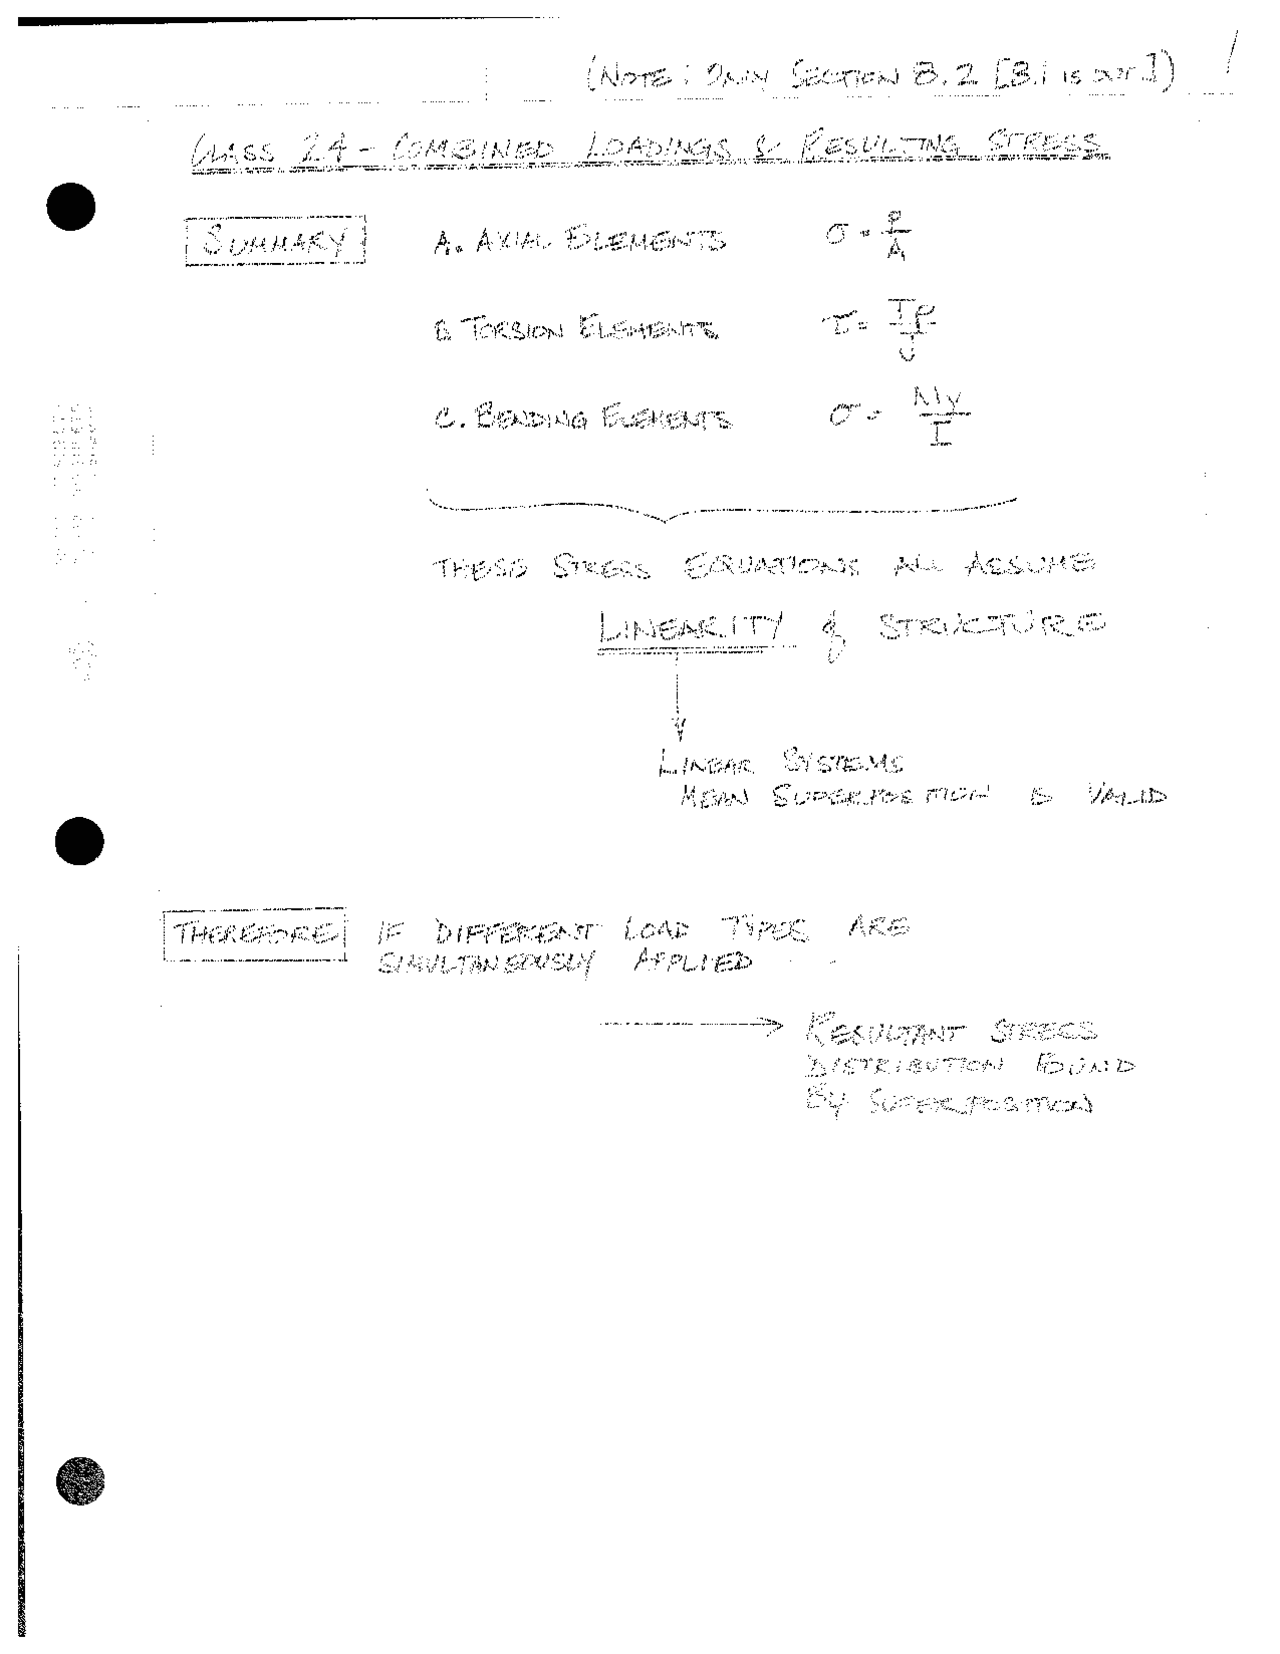 (NOTE: ONLY SECTION 8.2 [8.1 IS OUT]) 1
CLASS 24 - COMBINED LOADINGS & RESULTING STRESS
SUMMARY
A. AXIAL ELEMENTS σ = P/A
B. TORSION ELEMENTS τ = Tρ/J
C. BENDING ELEMENTS σ = My/I
THESE STRESS EQUATIONS ALL ASSUME
LINEARITY of STRUCTURE
LINEAR SYSTEMS
MEAN SUPERPOSITION IS VALID
THEREFORE IF DIFFERENT LOAD TYPES ARE
SIMULTANEOUSLY APPLIED
→ RESULTANT STRESS
DISTRIBUTION FOUND
BY SUPERPOSITION